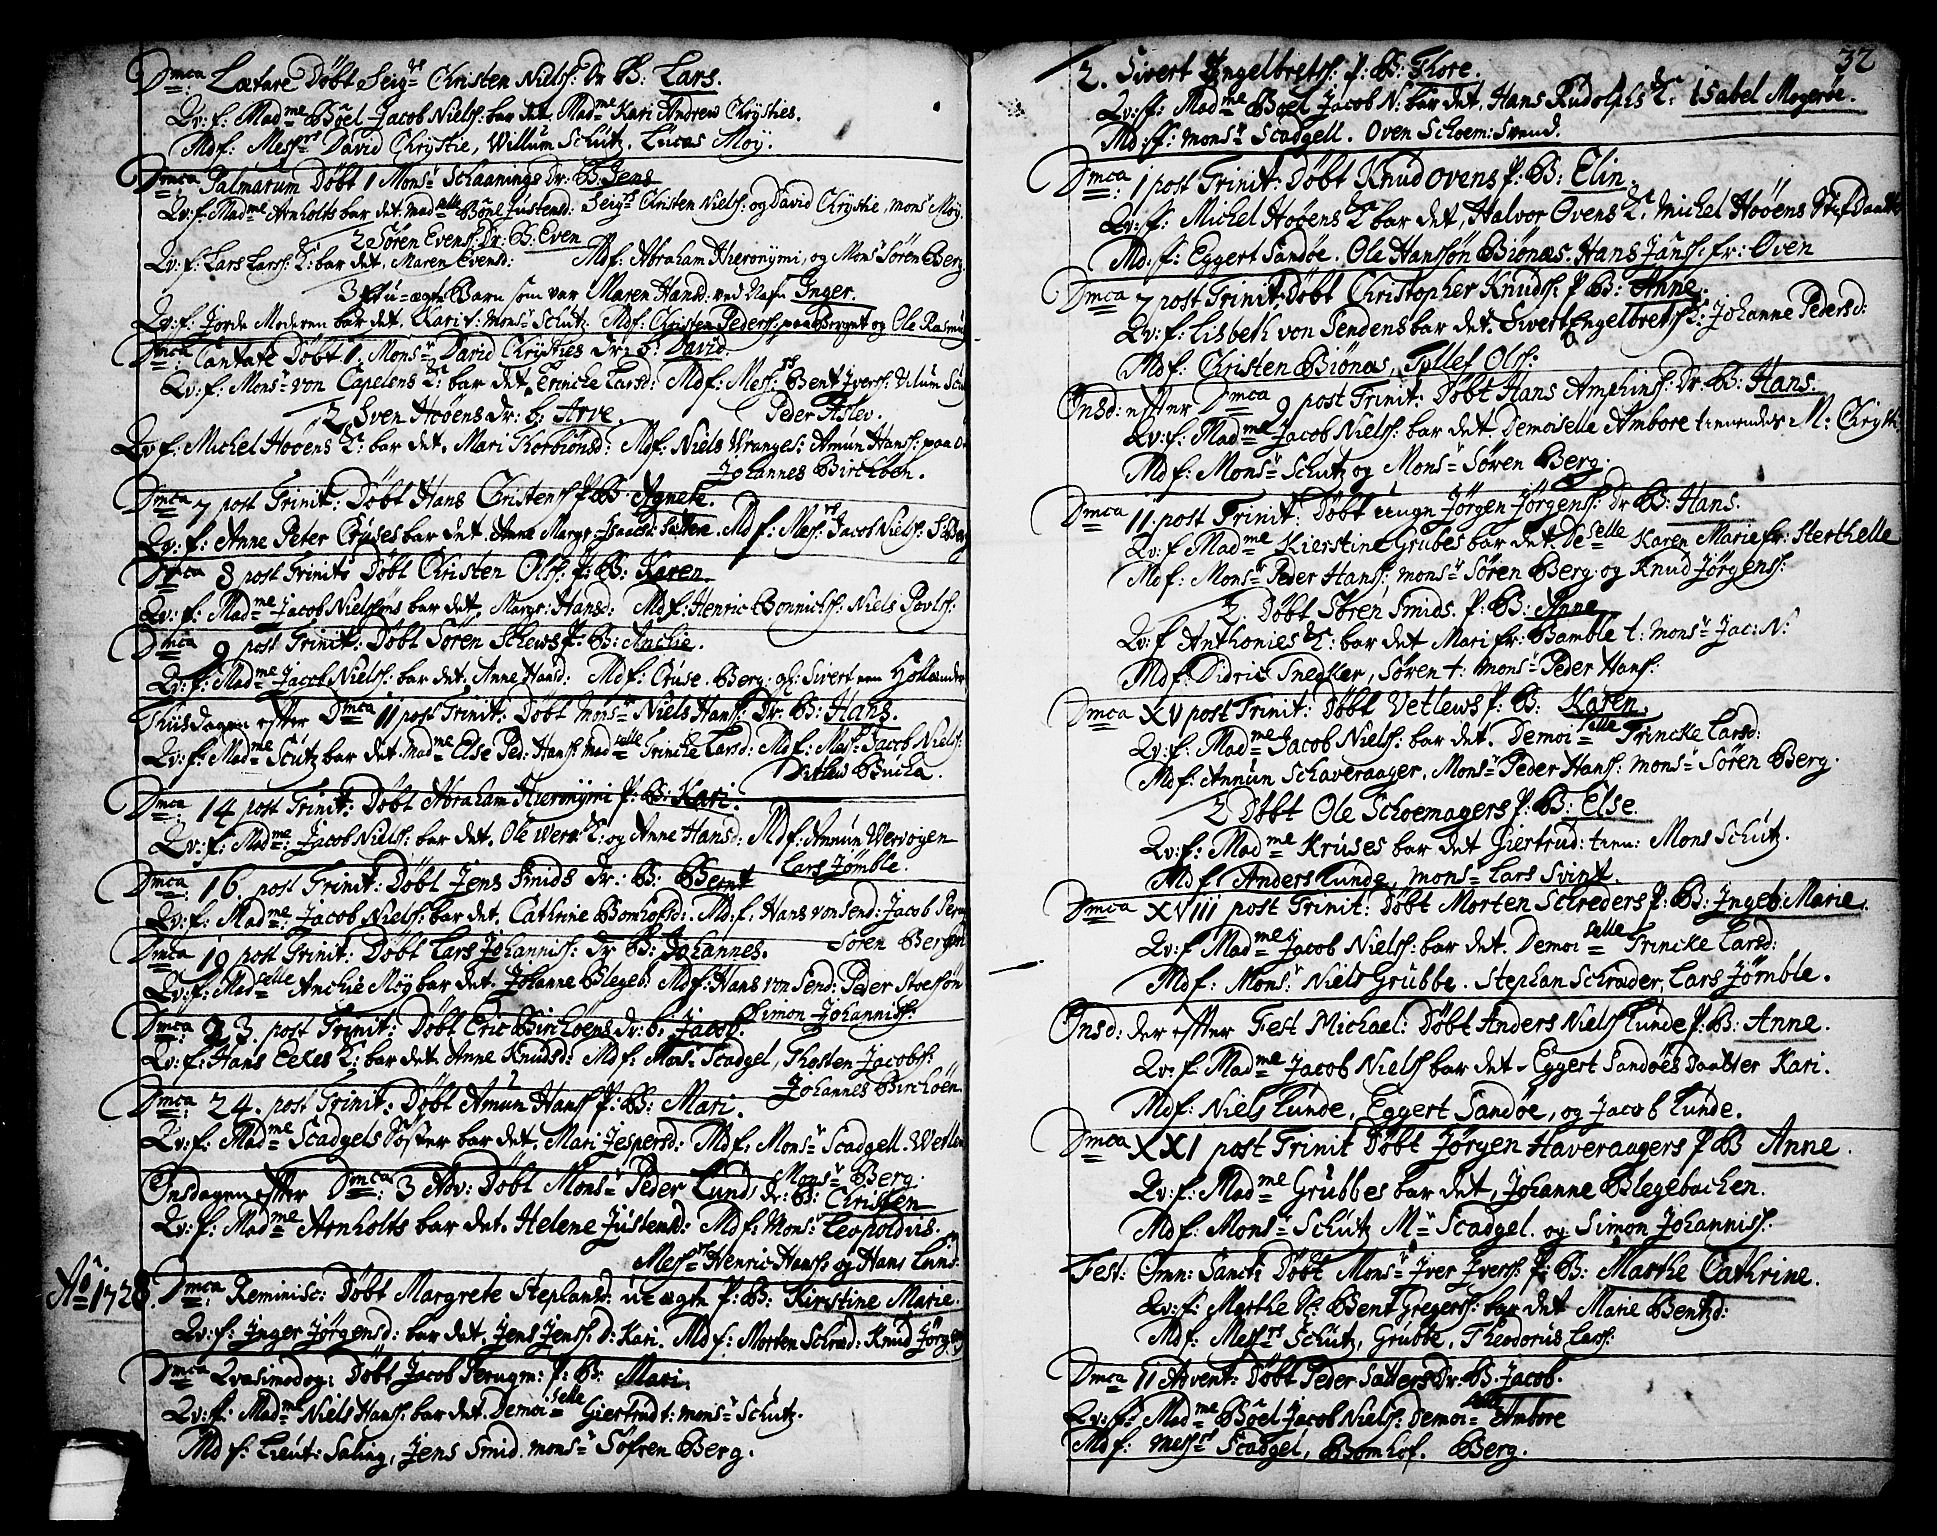 Dmca Lætare Døbt Seigr Christen Niels: Dr B: Lars.
Qv: f: Madme Böel Jacob Niels: bar det, Madme Kari Andrew Chrysties.
Mdf: Messrs David Chrystie, Willum Schutz, Lucas Moy.
Dmca Palmarum Døbt 1 Monsr Schaanings Dr: B: Jens
Qv: f: Madme Arnholts bar det. Madselle Böel Justensd: Seigr Christen Niels: og David Chrystie, Monsr Moy.
2 Søren Evens: Dr: B: Even
Qv: f: Lars Larss: K: bar det, Maren Evensd: Mdf: Abraham Hieronymi, og Monsr Søren Berg.
3 Et u-ægte Barn som var Maren Hansd: ved Nafn Inger.
Qv: f: Jorde Moderen bar det. Kari t: Monsr Schutz. Mdf: Christen Peders: paa Berget og Ole Rasmus
Dmca Cantate Døbt 1. Monsr David Chrysties Dr: b: David.
Qv: f: Monsr von Capelens K: bar det, Trinche Larsd: Mdf: Messrs Bent Ivers: Vilum Scu
2 Sven Høøens Dr: b: Arve. Peder Aslev.
Qv: f: Michel Høøens K: bar det. Mari Torbiönsd: Mdf: Niels Wrangels: Amun Hans: paa
Johannes Birchöen.
Dmca 7 post Trinit: Døbt Hans Christens: P: B: Agnete.
Qv: f: Anne Peter Cruses bar det. Anne Margr: Isachs: Sætter. Mdf: Messrs Jacob Niels: S: Berg
Dmca 8 post Trinit: Døbt Christen Ols: P: B: Karen.
Qv: f: Madme Jacob Nielsøns bar det, Margr: Hansd: Mdf: Henric Bonnichs: Niels Povls:
Dmca 9 post Trinit: Døbt Søren Schews P: B: Anchie.
Qv: f: Madme Jacob Niels: bar det. Anne Hansd: Mdf: Cruse. Berg. Sivert Hollænder
Thiisdagen efter Dmca 11 post Trinit: Døbt Monsr Niels Hans: Dr: B: Hans.
Qv: f: Madme Scutz bar det Madme Else Ped: Hans: Madselle Trinche Larsd: Mdf: Mes: Jacob Niels:
Ditlew Bucha.
Dmca 14 post Trinit: Døbt Abraham Hieronymi P: B: Kari.
Qv: f: Madme Jacob Niels: bar det. Ole Wern K: og Anne Hansd: Mdf: Amun Wervogen
Lars Jømble.
Dmca 16. post Trinit: Døbt Jens Smids Dr: B: Bernt
Qv: f: Madme Jacob Niels: bar det, Cathrine Bomhofsd: Mdf: Hans von Send: Jacob Peru
Søren Berg
Dmca 19 post Trinit: Døbt Lars Johanniss: Dr B: Johannes.
Qv: f: Madselle Anchie Möy bar det. Johanne Blegeb: Mdf: Hans von Send: Peder Stoesøn
Simon Johanniss:
Dmca 23. post Trinit: Døbt Eric Birchöens dr: b: Jacob.
Qv: f: Hans Eekes K: bar det Anne Knudsd: Mdf: Monsr Scadgel, Thosten Jacobs:
Johannes Birchöen
Dmca 24. post Trinit: Døbt Amun Hans P: B: Mari.
Qv: f: Madme Scadgels Søster bar det. Mari Jespersd: Mdf: Monsr Scadgell. Wetle
Monsr Berg.
Onsdagen efter Dmca: 3 Adv: Døbt Monsr Peder Lund, dr: B: Christen
Qv: f: Madme Arnholts bar det. Helene Justensd: Mdf: Monsr Leopoldus.
Messrs Henric Hans: og Hans Lund.
Ao 1728. Dmca: Reminisc: Døbt Margrete Stephansd: u-ægte P: B: Kirstine Marie.
Qv: f: Inger Jørgensd: bar det. Jens Jens: D: Kari. Mdf: Morten Schrad: Knud Jørgens
Dmca Qvasimodog: Døbt Jacob Perugm: P: B: Mari.
Qv: f: Madme Niels Hans: bar det. Demoiselle Giertrud t: Monsr Schutz.
Mdf: Lieut: Saling, Jens Smid. Monsr Søfren Berg.
32
2. Sivert Ingelbrets: P: B: Thore.
Qv: f: Madme Böel Jacob N: bar det, Hans Rudolphs Dr: Isabel Mogerøe.
Mdf: Monsr Scadgell. Oven Schoem: Svend.
Dmca 1 post Trinit: Døbt Knud Ovens P: B: Elin.
Qv: f: Michel Høøens K bar det, Halvor Ovens K: Michel Høøens Stif Daatter
Mdf: Eggert Sandøe. Ole Hansøn Biönæs. Hans Jans: fr: Oven
Dmca 7 post Trinit: Døbt Christopher Knuds: P B: Anne.
Qv: f: Lisbeth von Sendens bar det. Sivert Engelbrets: K: Johanne Pedersd:
Mdf: Christen Biönæs, Tollef Ols:
Onsd: efter Dmca 9 post Trinit: Døbt Hans Amphins: Dr: B: Hans.
Qv: f: Madme Jacob Niels: bar det. Demoiselle Ambore tienendes M: Chryst
Mdf: Monsr Schutz og Monsr Søren Berg.
Dmca 11. post Trinit: Døbt ungr Jørgen Jørgens: Dr B: Hans.
Qv: f: Madme Kierstine Grubes bar det. Deselle Karen Marie fr: Sterthelle
Mdf: Monsr Peder Hans: Monsr Søren Berg og Knud Jørgens:
2. Døbt Søren Smids. P: B: Anne
Qv: f Anthonies K: bar det Mari fr: Bamble t: Monsr Jac: N:
Mdf: Didric Snedker, Søren t: Monsr Peder Hans:
Dmca XV post Trinit: Døbt Vetlews P: B: Karen.
Qv: f: Madme Jacob Niels: bar det. Demoiselle Trincke Larsd:
Mdf: Annun Schaveraager, Monsr Peder Hans: Monsr Søren Berg.
2 Døbt Ole Schoemagers P: B: Else.
Qv: f: Madme Kruses bar det Giertrud: tien: Mons Schutz.
Mdf: Anders Lunde, Monsr Lars Svint.
Dmca XVIII post Trinit: Døbt Morten Schreders P: B: Ingeb: Marie.
Qv: f Madme Jacob Niels: bar det. Demoiselle Trincke Larsd:
Mdf: Monsr Niels Grubbe. Stephan Schrader, Lars Jømble.
Onsd: der efter Fest Michael: Døbt Anders Niels Lunde P: B: Anne.
Qv: f: Madme Jacob Niels bar det Eggert Sandøes Daatter Kari.
Mdf: Niels Lunde, Eggert Sandøe, og Jacob Lunde.
Dmca XXI post Trinit Døbt Jørgen Haveraagers P: B Anne.
Qv: f: Madme Grubbes bar det, Johanne Blegebachen.
Mdf: Monsr Schutz Mr Scadgel. og Simon Johanniss:
Fest: Omn: Sanct: Døbt Monsr Iver Ivers: P: B: Marthe Cathrine.
Qv: f: Marthe Sr: Bent Gregers: bar det Marie Bentsd:
Mdf: Messrs Schutz, Grubbe, Theodorus Lars:
Dmca 11 Advent: Døbt Peder Sætters Dr: B. Jacob.
Qv: f: Madme Böel Jacob Niels: Demoiselle Ambore
Mdf: Messrs Scadgel, Bomhof. Berg.